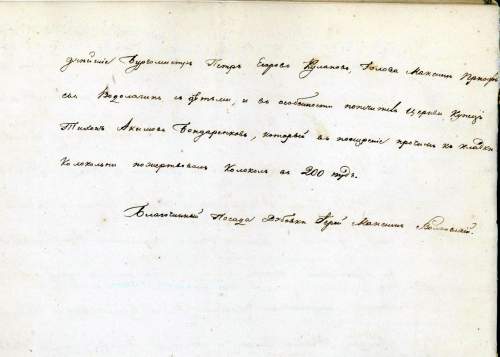 Бургомистръ Петръ Егоровъ Кулаковъ, Голова Максимъ
Водолагинъ съ дѣтьми, и въ особенности попечитель Церкви Купецъ
Тихонъ Акимовъ Бондаренковъ, который въ поощреніе прочихъ къ кладки
Колокольни пожертвовалъ Колоколъ въ 200 пудъ.
Благочинный Посада Дубовки Іерей Максимъ